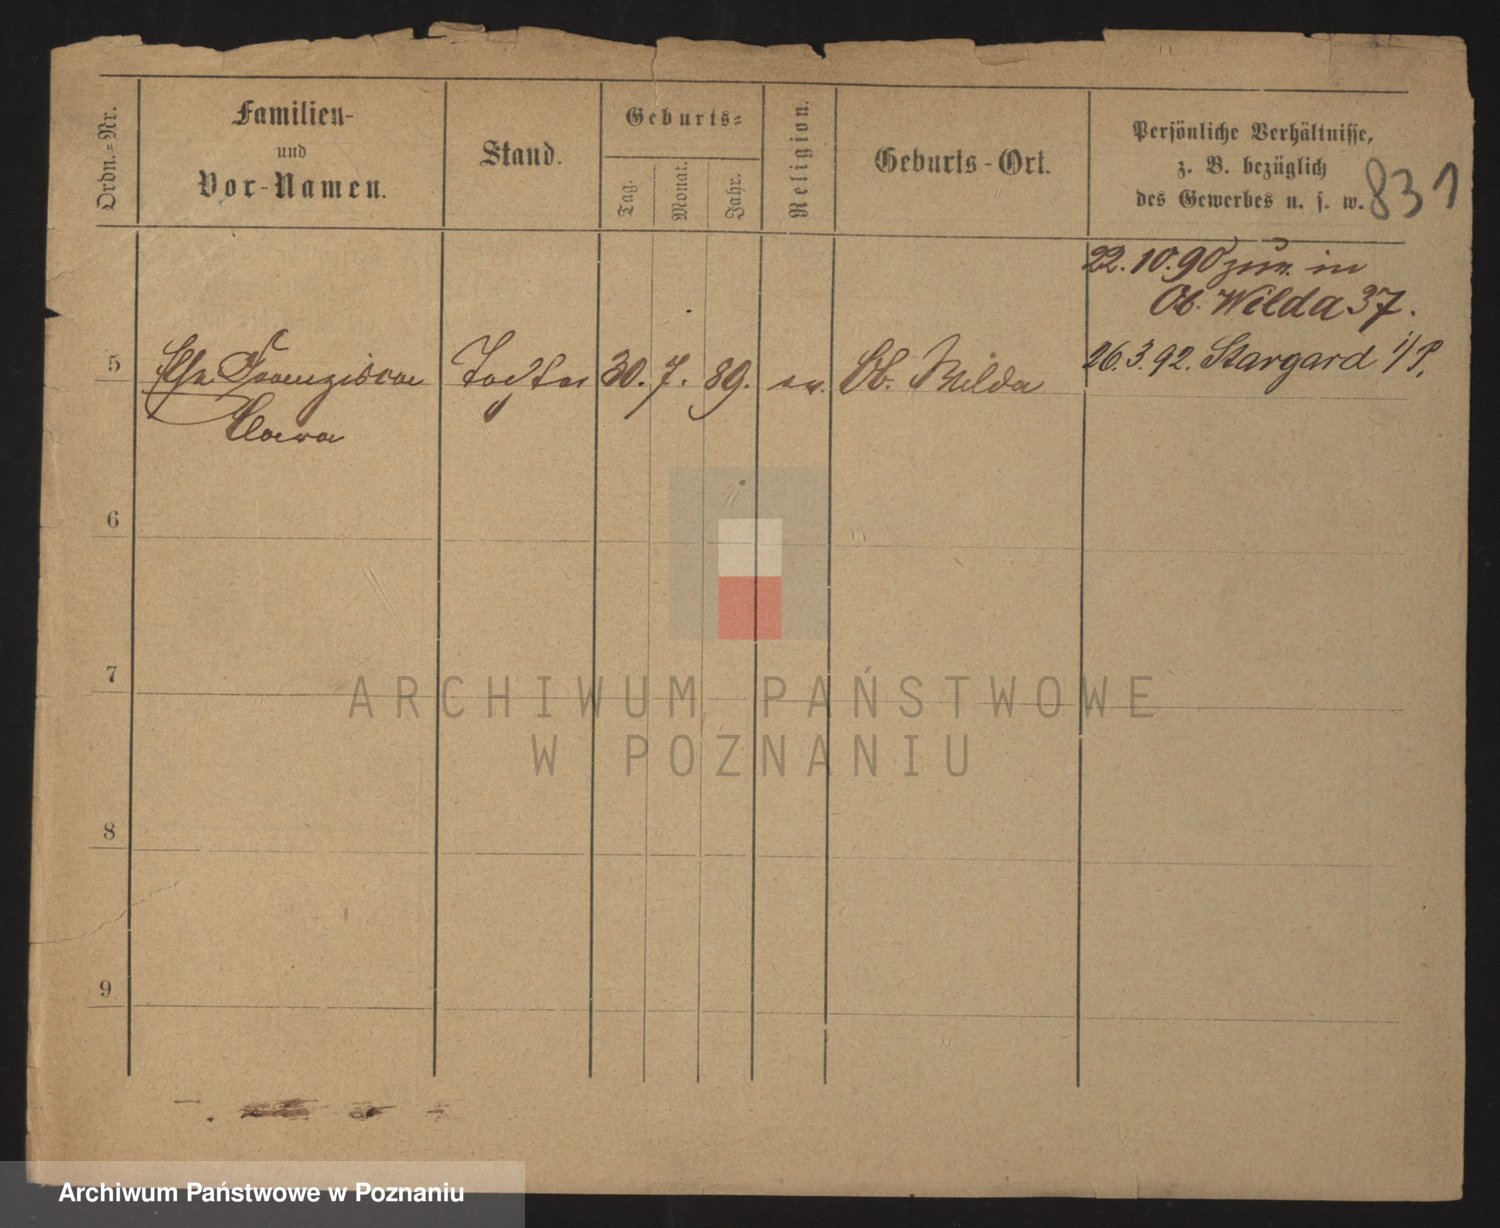 Ordn.=Nr.
Familien-
und
Vor-Namen.
Stand.
Geburts=
Tag.
Monat.
Jahr.
Religion.
Geburts-Ort.
Persönliche Verhältnisse,
z. B. bezüglich
des Gewerbes u. s. w.
831
22.10.90 zur. in
Ob. Wilda 37.
5 Franziska Tochter 30. 7. 89. ev. Ob. Wilda 26.3.92. Stargard i/P.
Clara
6
7
8
9
ARCHIWUM PAŃSTWOWE
W POZNANIU
Archiwum Państwowe w Poznaniu